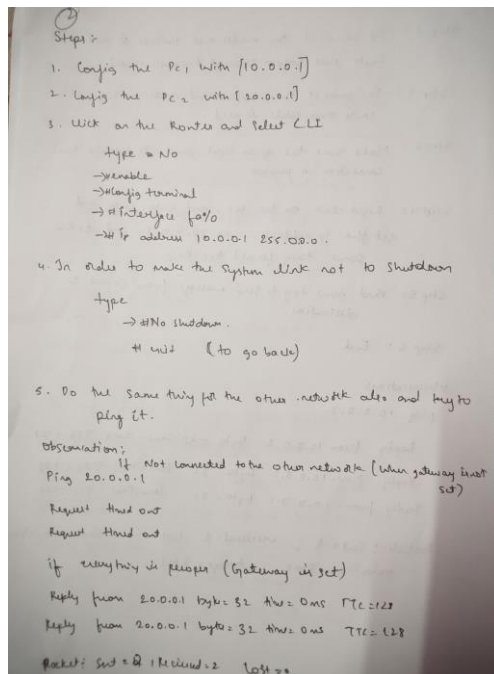 2
Steps :-
1. Config the PC1 with [10.0.0.1]
2. Config the PC2 with [20.0.0.1]
3. Click on the Router and select CLI
type = No
→#enable
→#config terminal
→#interface fa0/0
→# ip address 10.0.0.1 255.0.0.0.
4. In order to make the system link not to shutdown
type
→ #No shutdown.
# exit (to go back)
5. Do the same thing for the other network also and try to
ping it.
Observation:
If Not connected to the other network (when gateway is not
set)
Ping 20.0.0.1
Request timed out
Request timed out
if everything is proper (Gateway is set)
Reply from 20.0.0.1 byte= 32 time= 0ms TTL=128
Reply from 20.0.0.1 byte= 32 time= 0ms TTL= 128
Packet: Sent = 2, Received = 2 Lost = 0